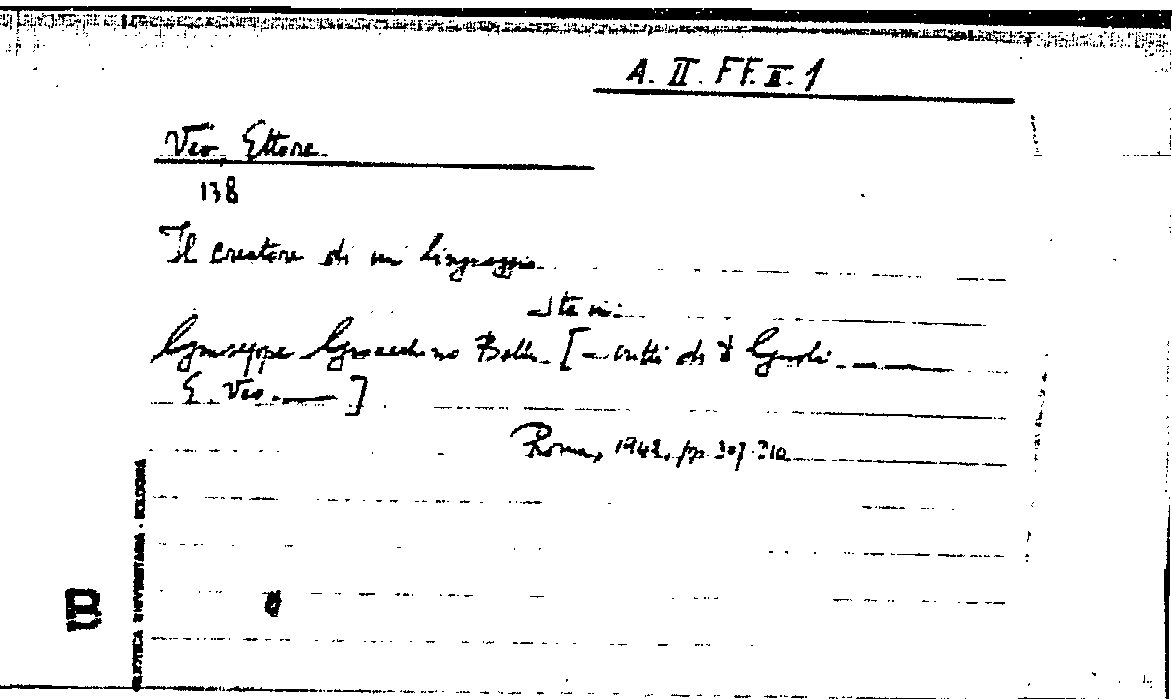 A. II. FF. II. 1
Veo, Ettore
138
Il creatore di un linguaggio
Sta in:
Giuseppe Gioacchino Belli [scritti di D Gnoli
E. Veo ]
Roma, 1942, pp. 307-310
BIBLIOTECA UNIVERSITARIA - BOLOGNA